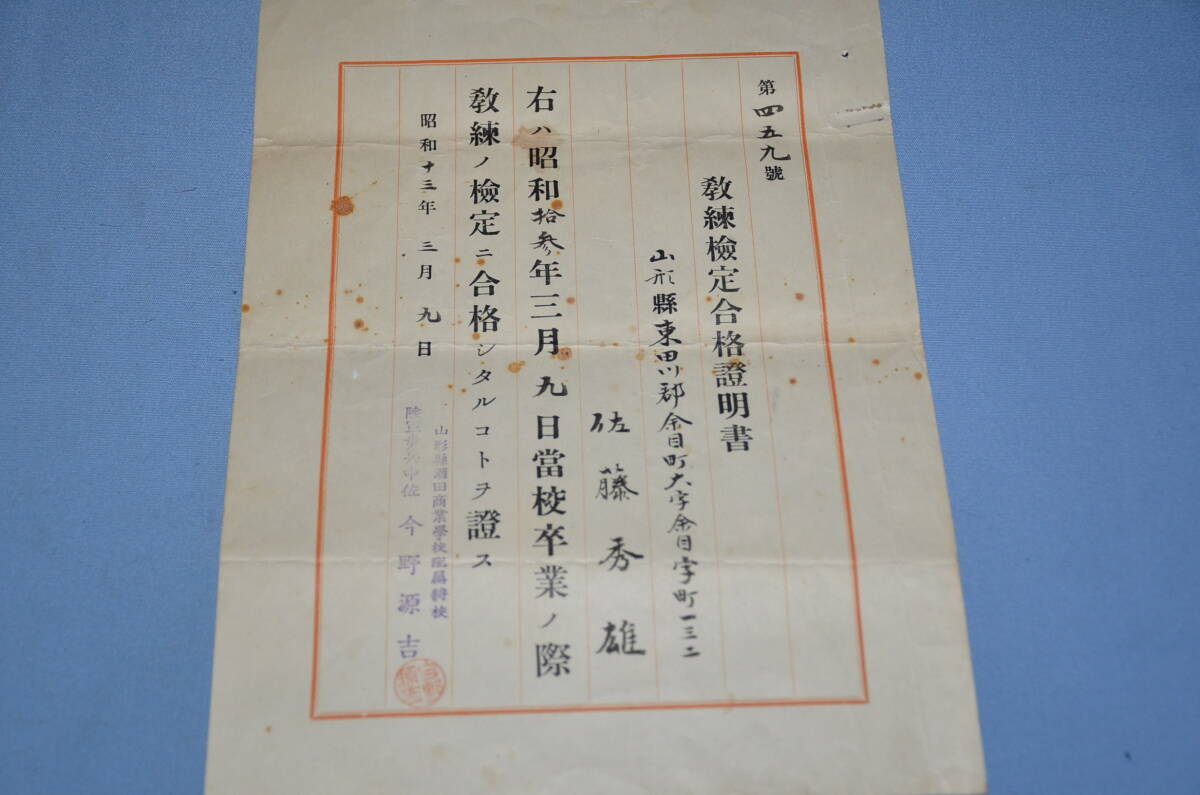 第四五九號
敎練檢定合格證明書
山形縣東田川郡余目町大字余目字町一三二
佐藤秀雄
右ハ昭和拾參年三月九日當校卒業ノ際
敎練ノ檢定ニ合格シタルコトヲ證ス
昭和十三年三月九日
山形縣酒田商業學校配屬將校
陸軍步兵中佐 今野源吉